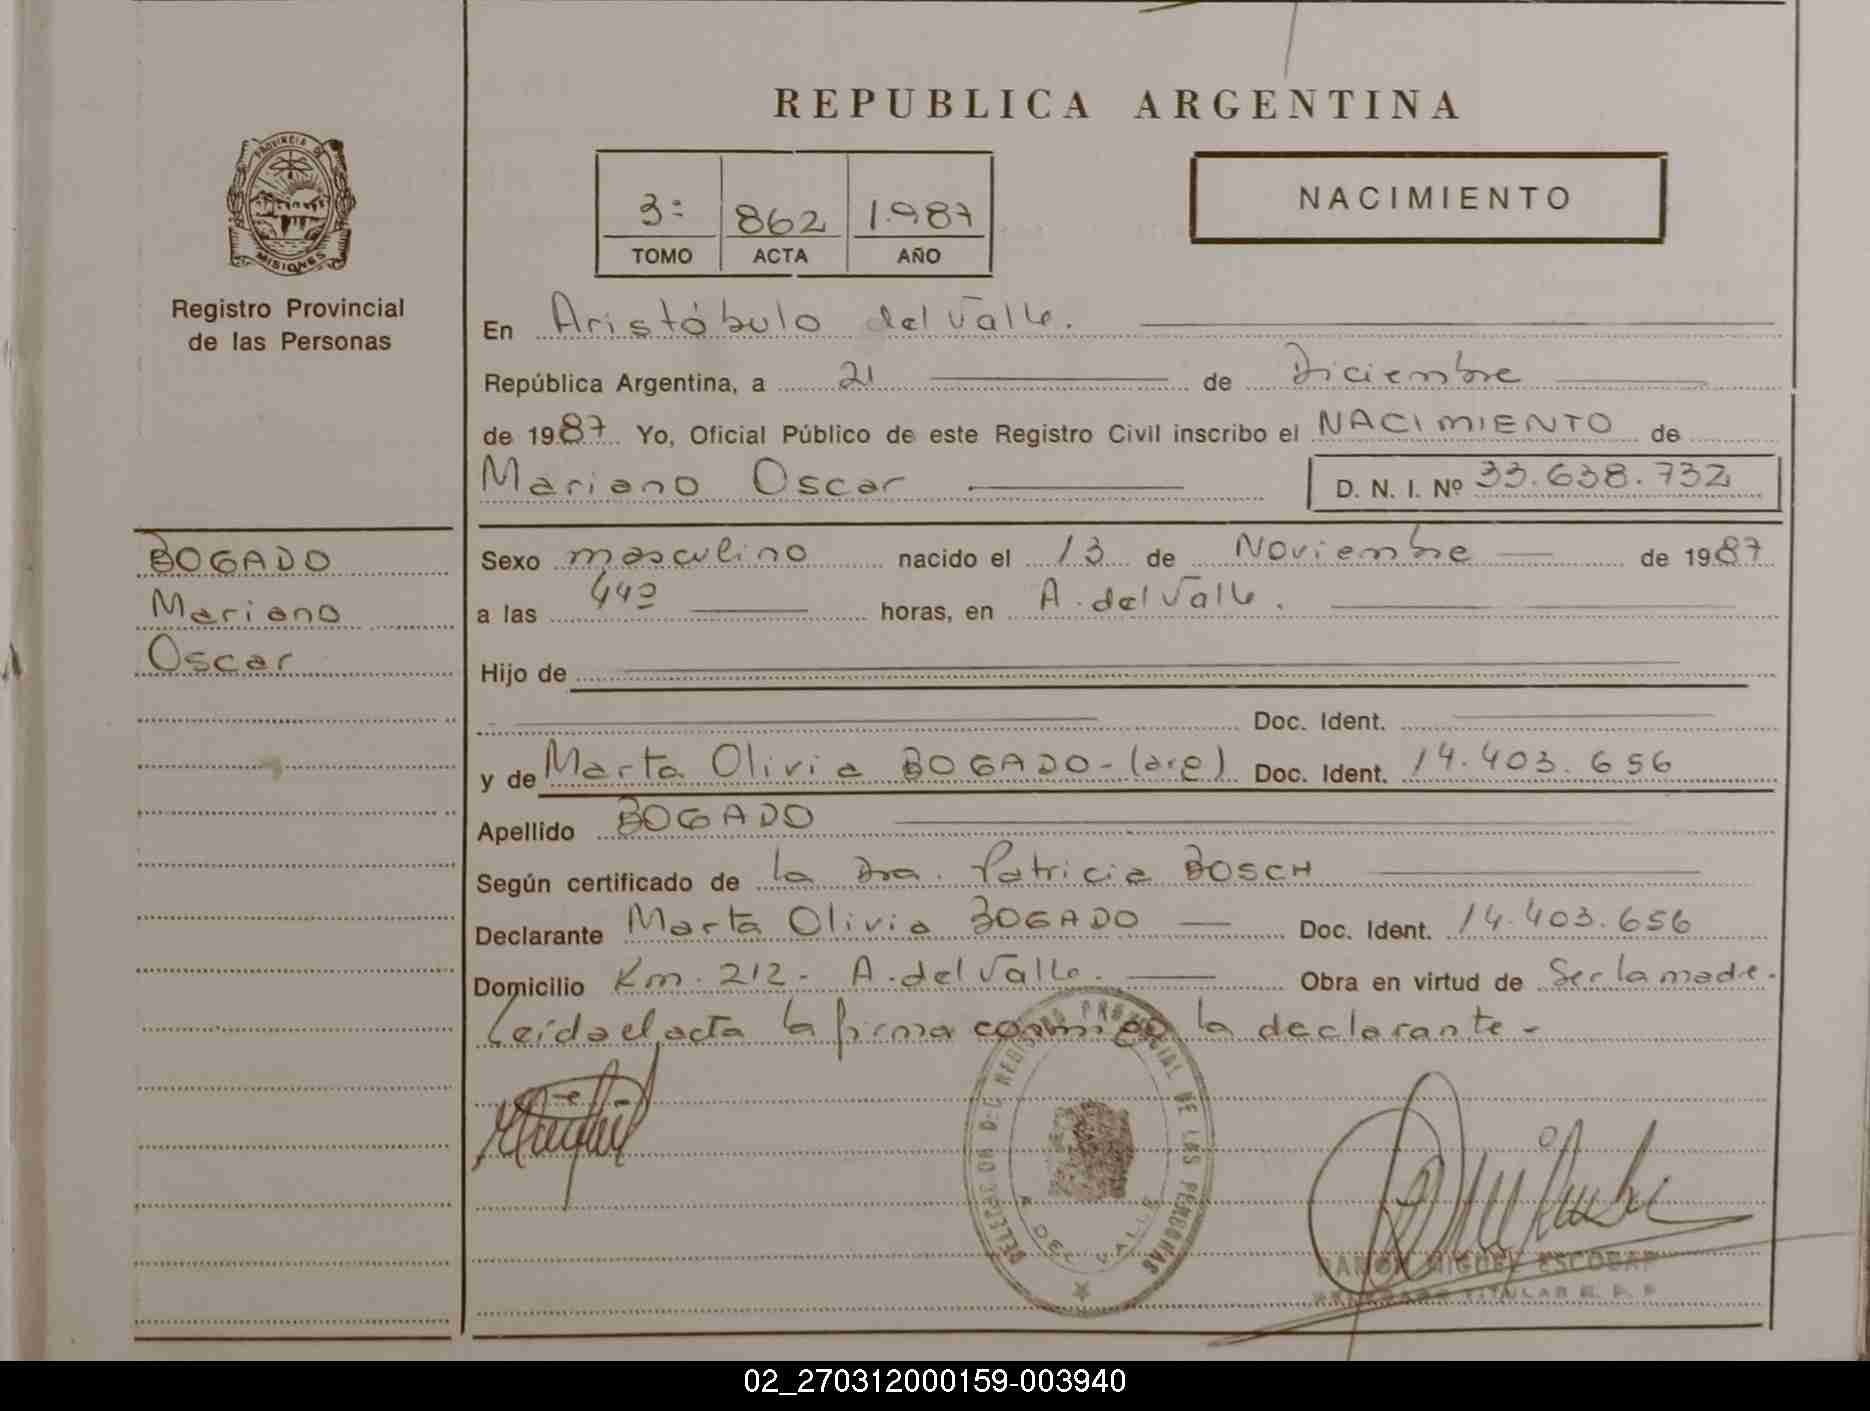 REPUBLICA ARGENTINA
PROVINCIA DE
MISIONES
Registro Provincial
de las Personas
3º 862 1.987
TOMO ACTA AÑO
NACIMIENTO
En Aristóbulo del Valle.
República Argentina, a 21 de Diciembre
de 1987 Yo, Oficial Público de este Registro Civil inscribo el NACIMIENTO de
Mariano Oscar D. N. I. Nº 33.638.732
BOGADO
Mariano
Oscar
Sexo masculino nacido el 13 de Noviembre de 1987
a las 4:40 horas, en A. del Valle.
Hijo de
Doc. Ident.
y de Marta Olivia BOGADO-(arg) Doc. Ident. 14.403.656
Apellido BOGADO
Según certificado de la Dra. Patricia BOSCH
Declarante Marta Olivia BOGADO Doc. Ident. 14.403.656
Domicilio Km. 212- A. del Valle. Obra en virtud de Ser la madre.
Leída el acta la firma conmigo la declarante-
DELEGACION DEL REGISTRO PROVINCIAL DE LAS PERSONAS
A. DEL VALLE
RAMON MIGUEL ESCOBAR
TITULAR R. P. P.
02_270312000159-003940